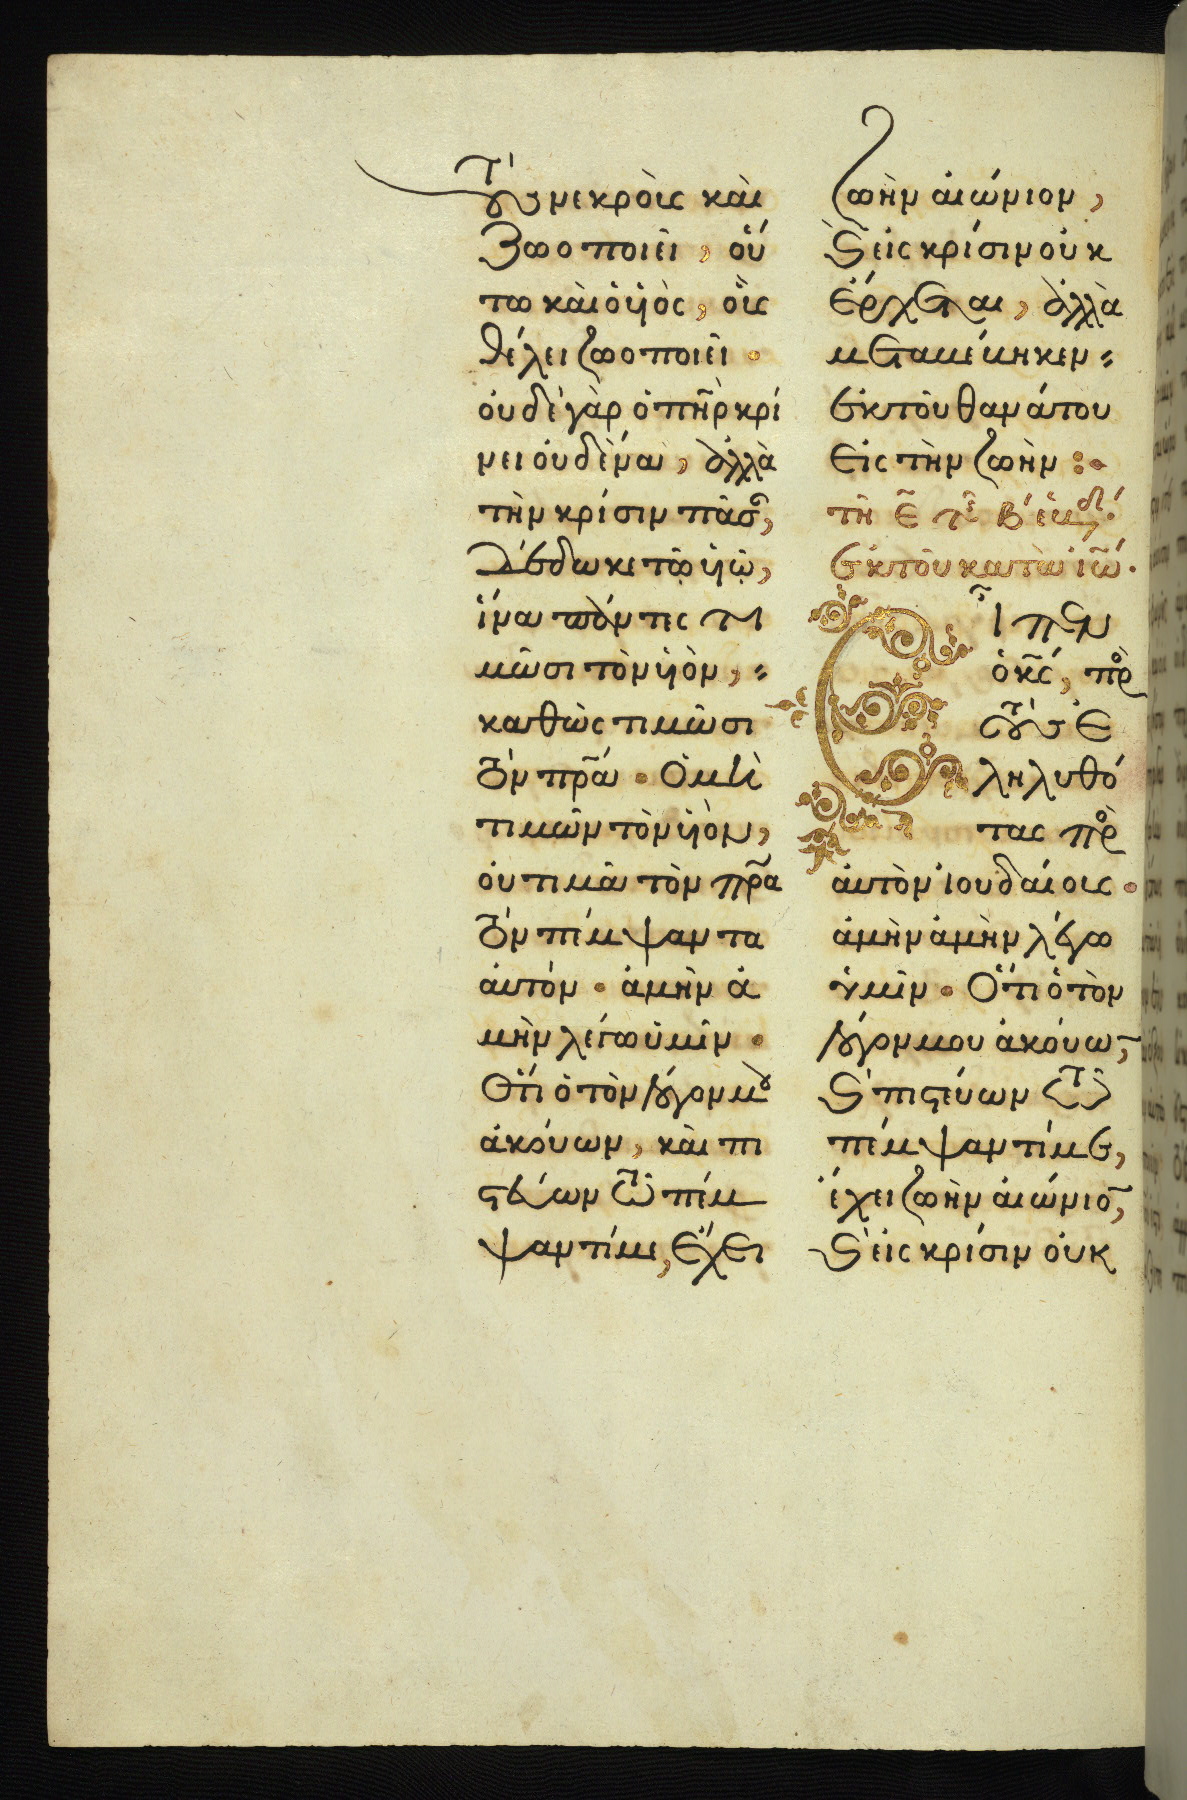 τοὺς νεκροὺς καὶ
ζωοποιεῖ, οὕ
τω καὶ ὁ υἱὸς, οὓς
θέλει ζωοποιεῖ.
οὐδὲ γὰρ ὁ πη̃ρ κρί
νει οὐδένα, ἀλλὰ
τὴν κρίσιν πᾶσ̃,
δέδωκε τῷ υἱῷ,
ἵνα πάντες τι
μῶσι τὸν υἱὸν,
καθὼς τιμῶσι
τὸν πρ̃α. Ὁ μὴ
τιμῶν τὸν υἱὸν,
οὐ τιμᾶ τὸν πρ̃α
τὸν πέμψαντα
αὐτόν. ἀμὴν ἀ
μὴν λέγω ὑμῖν.
Ὅτι ὁ τὸν λόγον μου
ἀκούων, καὶ πι
στεύων τῶ πέμ
ψαντί με, ἔχει
ζωὴν αἰώνιον,
καὶ εἰς κρίσιν οὐκ
ἔρχεται, ἀλλὰ
μεταβέβηκεν
ἐκ τοῦ θανάτου
εἰς τὴν ζωὴν:
τῆ ε̃ τῆς β´ ἑβδ´.
ἐκ τοῦ κατὰ ἰω̃.
Εἶπεν
ὁ κ̃ς, πρὸς
τοὺς ἐ
ληλυθό
τας πρὸς
αὐτὸν ἰουδαίους.
ἀμὴν ἀμὴν λέγω
ὑμῖν. Ὅτι ὁ τὸν
λόγον μου ἀκούω̃,
καὶ πιστεύων τῶ
πέμψαντί με,
ἔχει ζωὴν αἰώνιο̃,
καὶ εἰς κρίσιν οὐκ